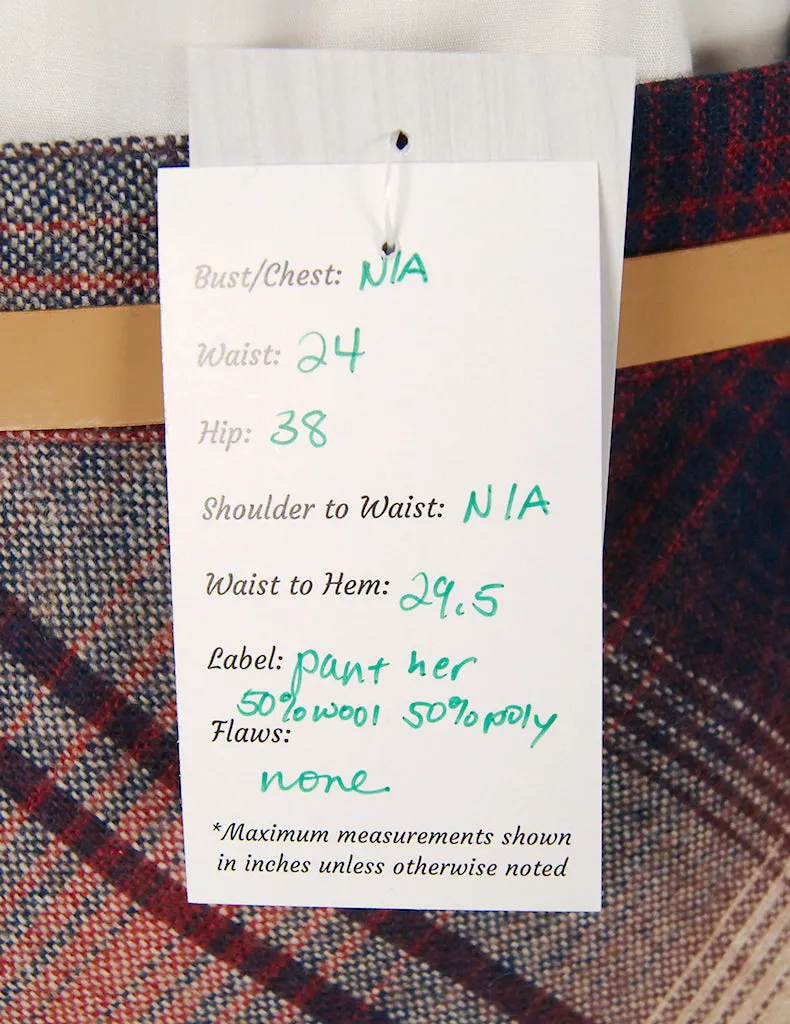 Bust/Chest: N/A
Waist: 24
Hip: 38
Shoulder to Waist: N/A
Waist to Hem: 29.5
Label: pant her
50% wool 50% poly
Flaws:
none.
*Maximum measurements shown
in inches unless otherwise noted